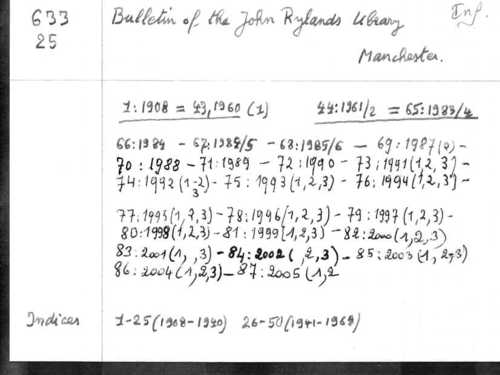 633 Bulletin of the John Rylands Library Inf.
25
Manchester.
1:1908 = 43,1960 (1) 44:1961/2 = 65:1983/4
66:1984 - 67:1984/5 - 68:1985/6 - 69:1987(2)-
70:1988 - 71:1989 - 72:1990 - 73:1991(1,2,3)-
74:1992(1-2) - 75:1993(1,2,3) - 76:1994(1,2,3)-
3
77:1995(1,2,3) - 78:1996(1,2,3) - 79:1997(1,2,3)-
80:1998(1,2,3) - 81:1999(1,2,3) - 82:2000(1,2,3)
83:2001(1, ,3) - 84:2002( ,2,3) - 85:2003(1,2,3)
86:2004(1,2,3) - 87:2005(1,2
Indices 1-25(1908-1940) 26-50(1941-1968)